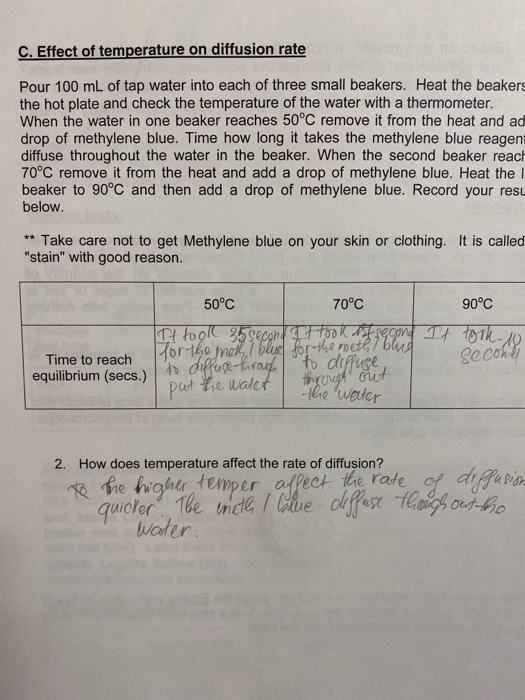 C. Effect of temperature on diffusion rate
Pour 100 mL of tap water into each of three small beakers. Heat the beakers
the hot plate and check the temperature of the water with a thermometer.
When the water in one beaker reaches 50°C remove it from the heat and ad
drop of methylene blue. Time how long it takes the methylene blue reagen
diffuse throughout the water in the beaker. When the second beaker reach
70°C remove it from the heat and add a drop of methylene blue. Heat the l
beaker to 90°C and then add a drop of methylene blue. Record your resu
below.
** Take care not to get Methylene blue on your skin or clothing. It is called
"stain" with good reason.
50°C 70°C 90°C
Time to reach
equilibrium (secs.)
It took 35 second
for the meth / blue
to diffuse throug
put the water
It took second
for the meth / blue
to diffuse
through out
the water
It took 10
seconds
2. How does temperature affect the rate of diffusion?
the higher temper affect the rate of diffusion
quicker. The meth / blue diffuse though out tho
water.